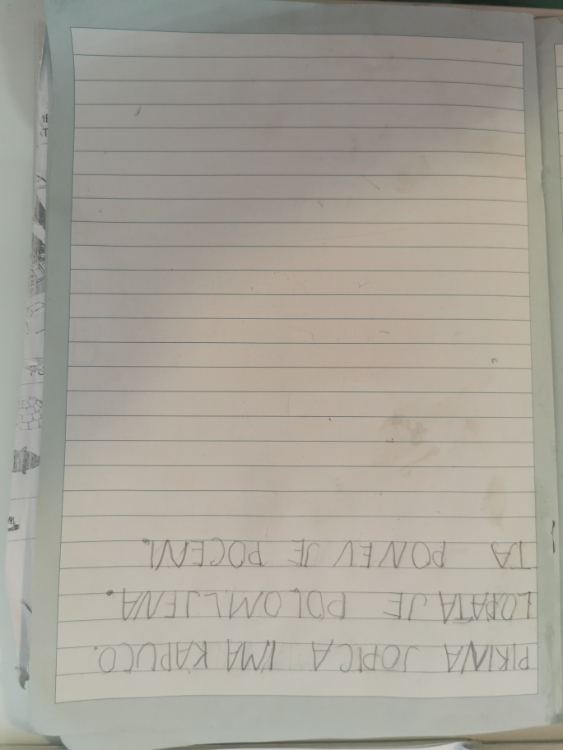 PIKINA JOPICA IMA KAPUCO.
LOPATA JE POLOMLJENA.
TA PONEV JE POCENI.